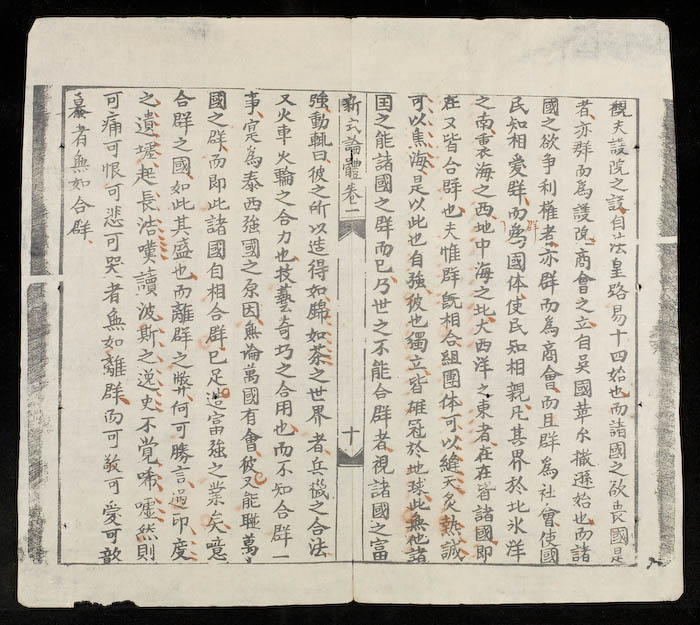 觀夫議院之設自法皇路易十四始也而諸國之欲喪國是
者亦群而為議院商會之立自吳國華尔撒遜始也而諸
國之欲争利權者亦群而為商會而且群為社會使國
民知相愛群而爲国体使民知相親凡其界於北氷洋
群
之南裏海之西地中海之北大西洋之東者在在皆諸國即
在又皆合群也夫惟群既相合組團体可以縫天灸熱誠
可以焦海是以此也自強彼也獨立皆雄冠於地球此無他諸
囯之能諸國之群而已乃世之不能合群者視諸國之富
新式論體卷一
十
強動輒曰彼之所以造得如如荼之世界者兵之合法
又火車火輪之合力也技藝奇巧之合用也而不知合群一
事寔為泰西強國之原因無淪萬國有會彼又能聮萬
國之群而即此諸國自相合群已足造富強之業矣噫
合群之國如此其盛也而離群之弊何可勝言過印度
之遺墟起長浩嘆讀波斯之逸史不覺唏噓然則
可痛可恨可悲可哭者無如離群而可敬可愛可歆
慕者無如合群